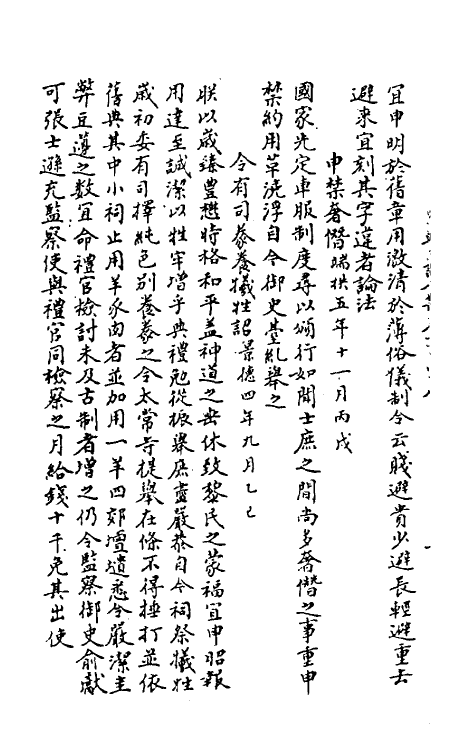 宜申明於舊章用激清於薄俗儀制令云賤避貴少避長輕避重去
避來宜刻其字違者論法
申禁奢僭端拱五年十一月丙戌
國家先定車服制度尋以頒行如聞士庶之間尚多奢僭之事重申
禁約用革澆浮自今御史臺糺舉之
令有司豢養犧牲詔景德四年九月乙巳
朕以歲臻豐懋時格和平蓋神道之垂休致黎民之蒙福宜申昭報
用達至誠潔以牲牢增乎典禮勉從振舉庶盡嚴恭自今祠祭犧牲
歲初委有司擇純色別養豢之令太常寺提舉在條不得捶打並依
舊典其中小祠止用羊豕肉者並加用一羊四郊壇壝悉令嚴潔圭
弊豆籩之數宜命禮官檢討未及古制者增之仍令監察御史俞獻
可張士遜充監察使與禮官同檢察之月給錢十千免其出使